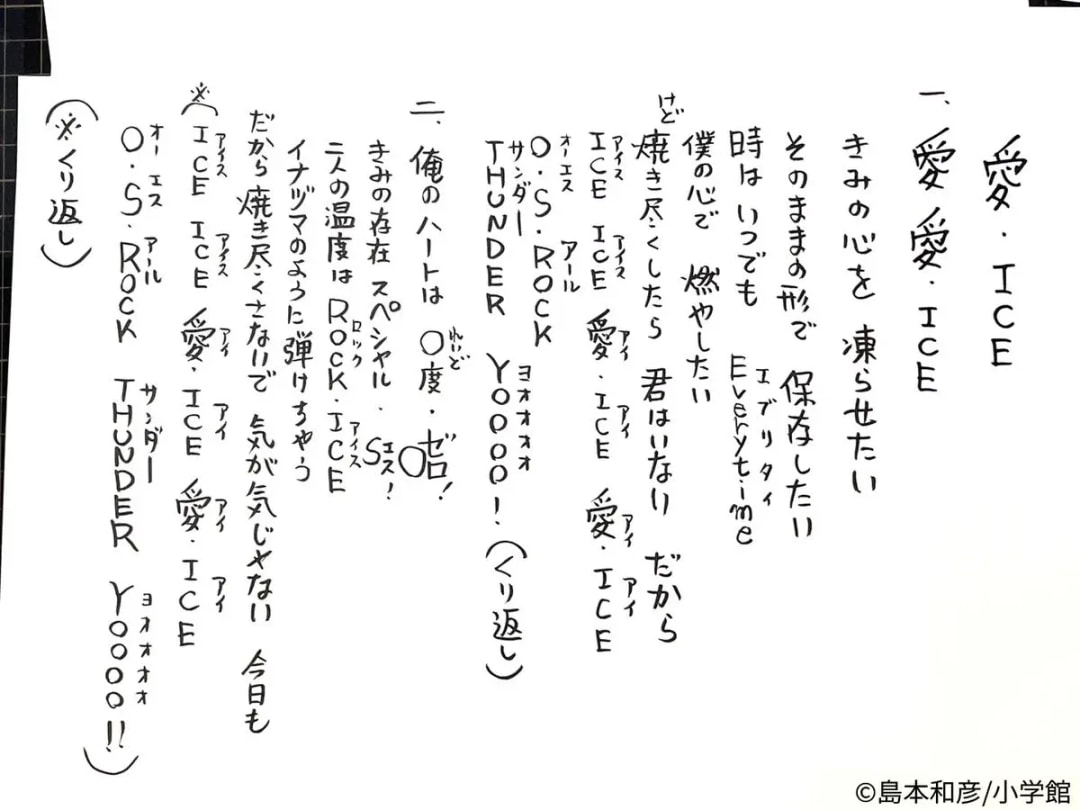 愛・ICE
一、愛愛・ICE
きみの心を 凍らせたい
そのままの形で 保存したい
時は いつでも Everytime エブリタイ
僕の心で 燃やしたい
けど焼き尽くしたら 君はいない だから
ICE アイス ICE アイス 愛 アイ・ICE アイ 愛 アイ・ICE アイ
O・S・ROCK オーエス アール
THUNDER サンダー YOOOO! ヨオオオオ (くり返し)
二、俺のハートは 〇度 れいど・ゼロ!
きみの存在 スペシャル・S エス!
二人の温度は ROCK ロック・ICE アイス
イナヅマのように 弾けちゃう
だから 焼き尽くさないで 気が気じゃない 今日も
(※ ICE アイス ICE アイス 愛 アイ・ICE アイ 愛 アイ・ICE アイ
O・S・ROCK オーエス アール THUNDER サンダー YOOOO!! ヨオオオオ)
(※くり返し)
©島本和彦/小学館